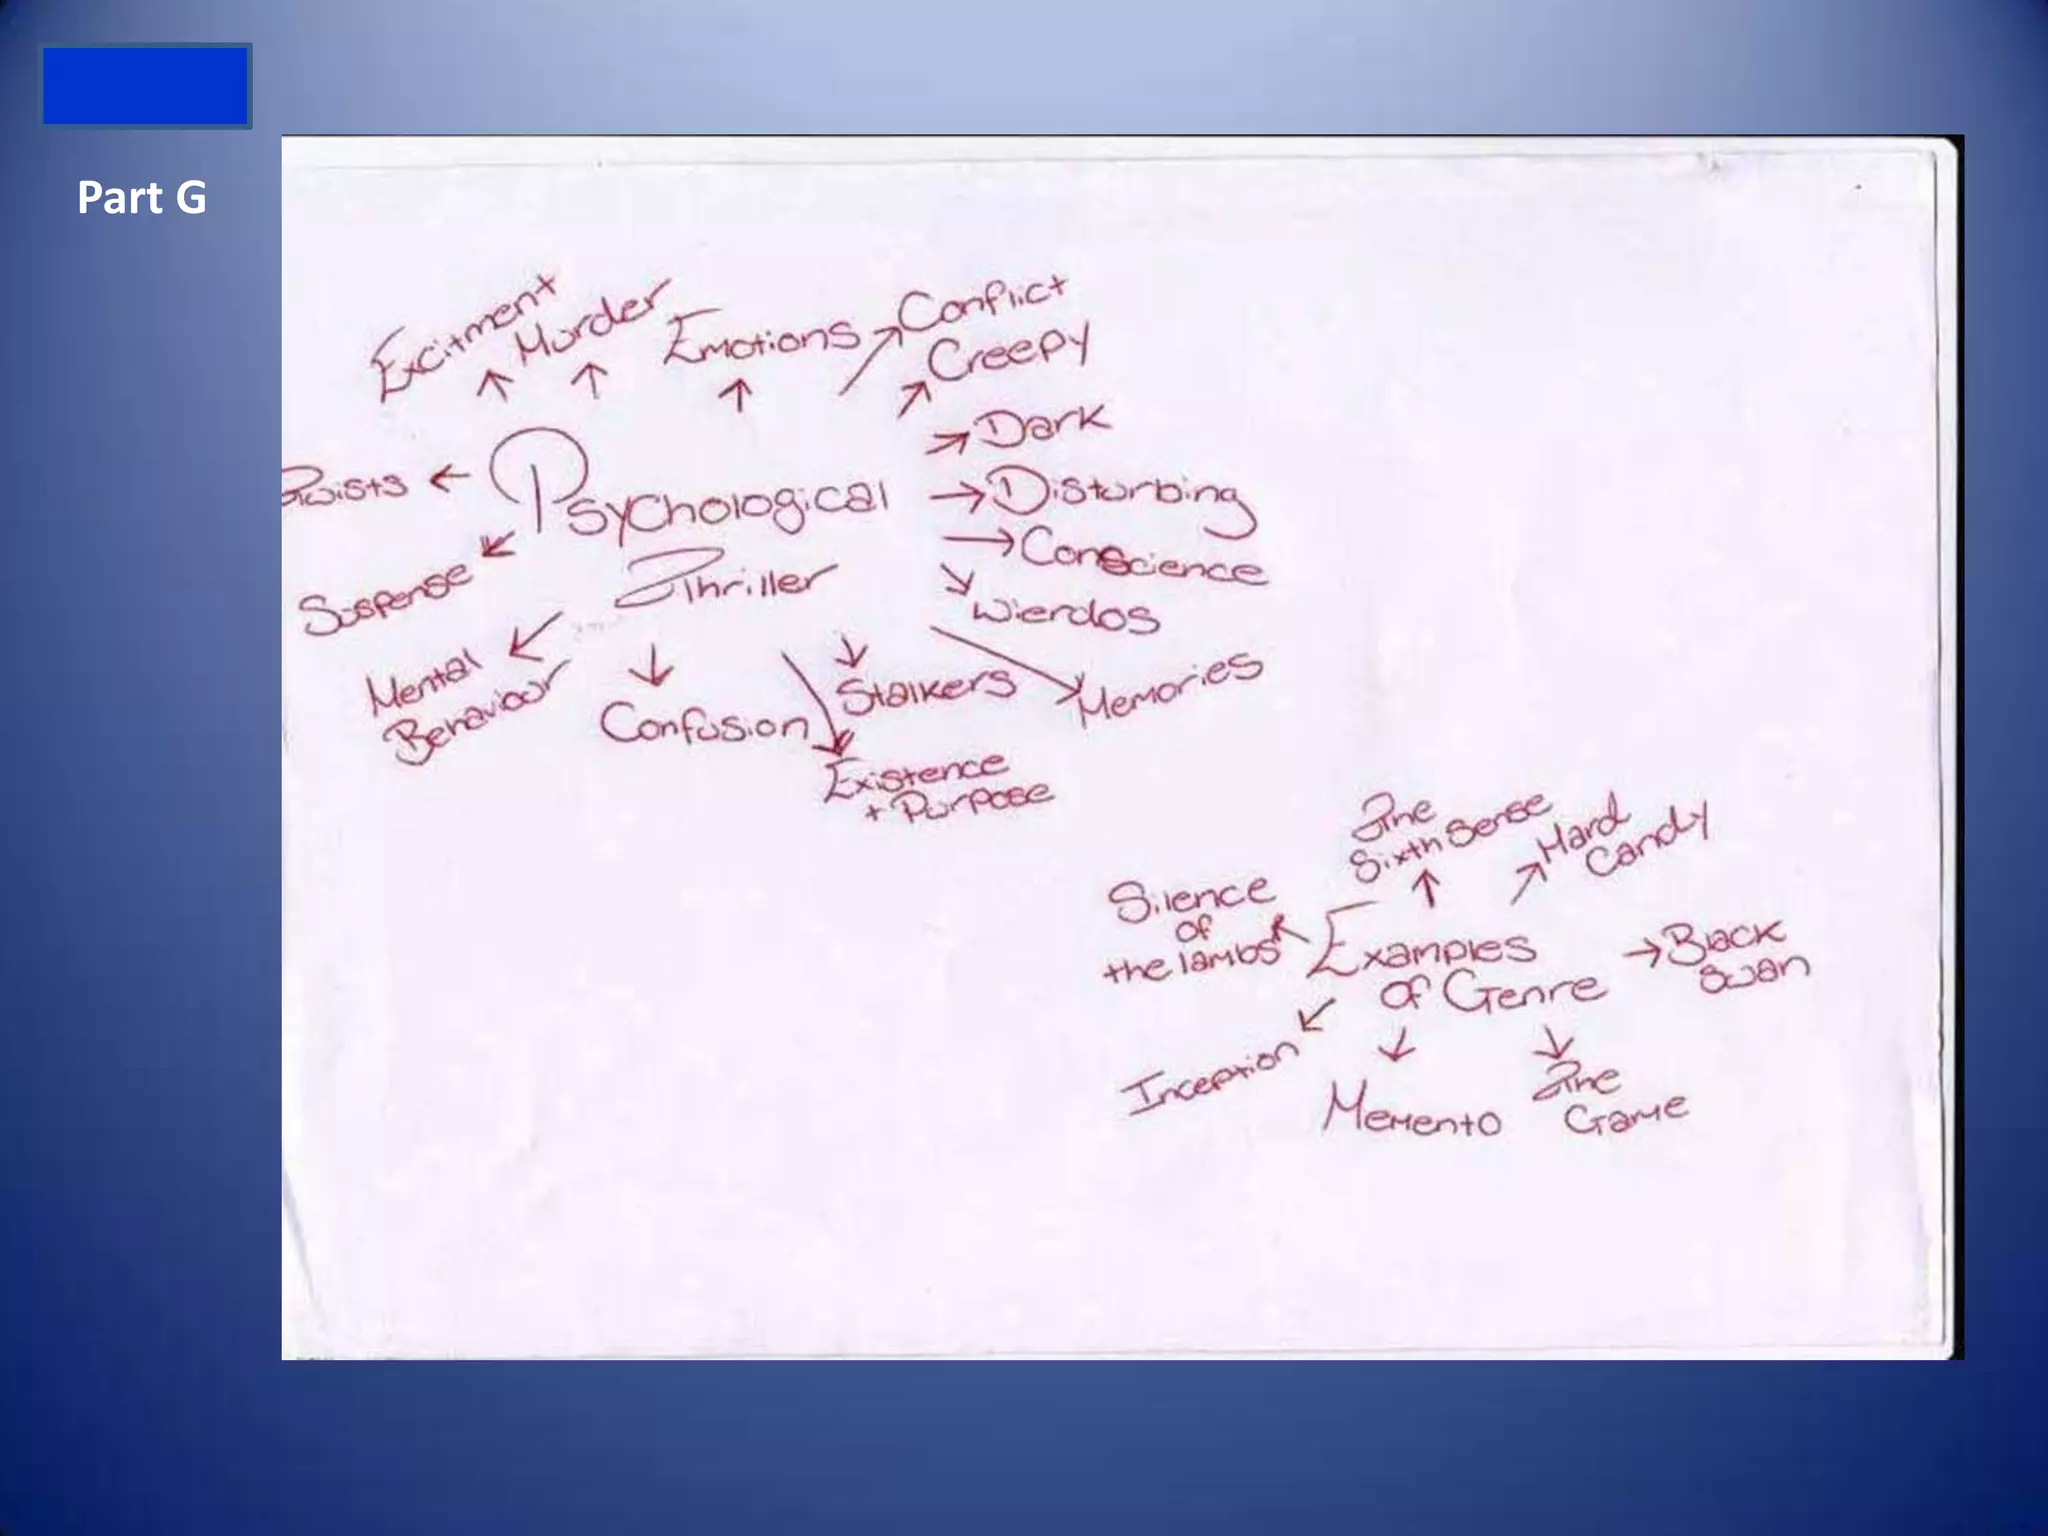 Part G
Excitment
Murder
Emotions
Conflict
Creepy
Dark
Disturbing
Conscience
Wierdos
Memories
Stalkers
Existence
+ Purpose
Confusion
Mental
Behaviour
Suspense
Twists
Psychological
Thriller
The
Sixth Sense
Hard
Candy
Silence
of
the lambs
Examples
of Genre
Black
Swan
Inception
Memento
The
Game